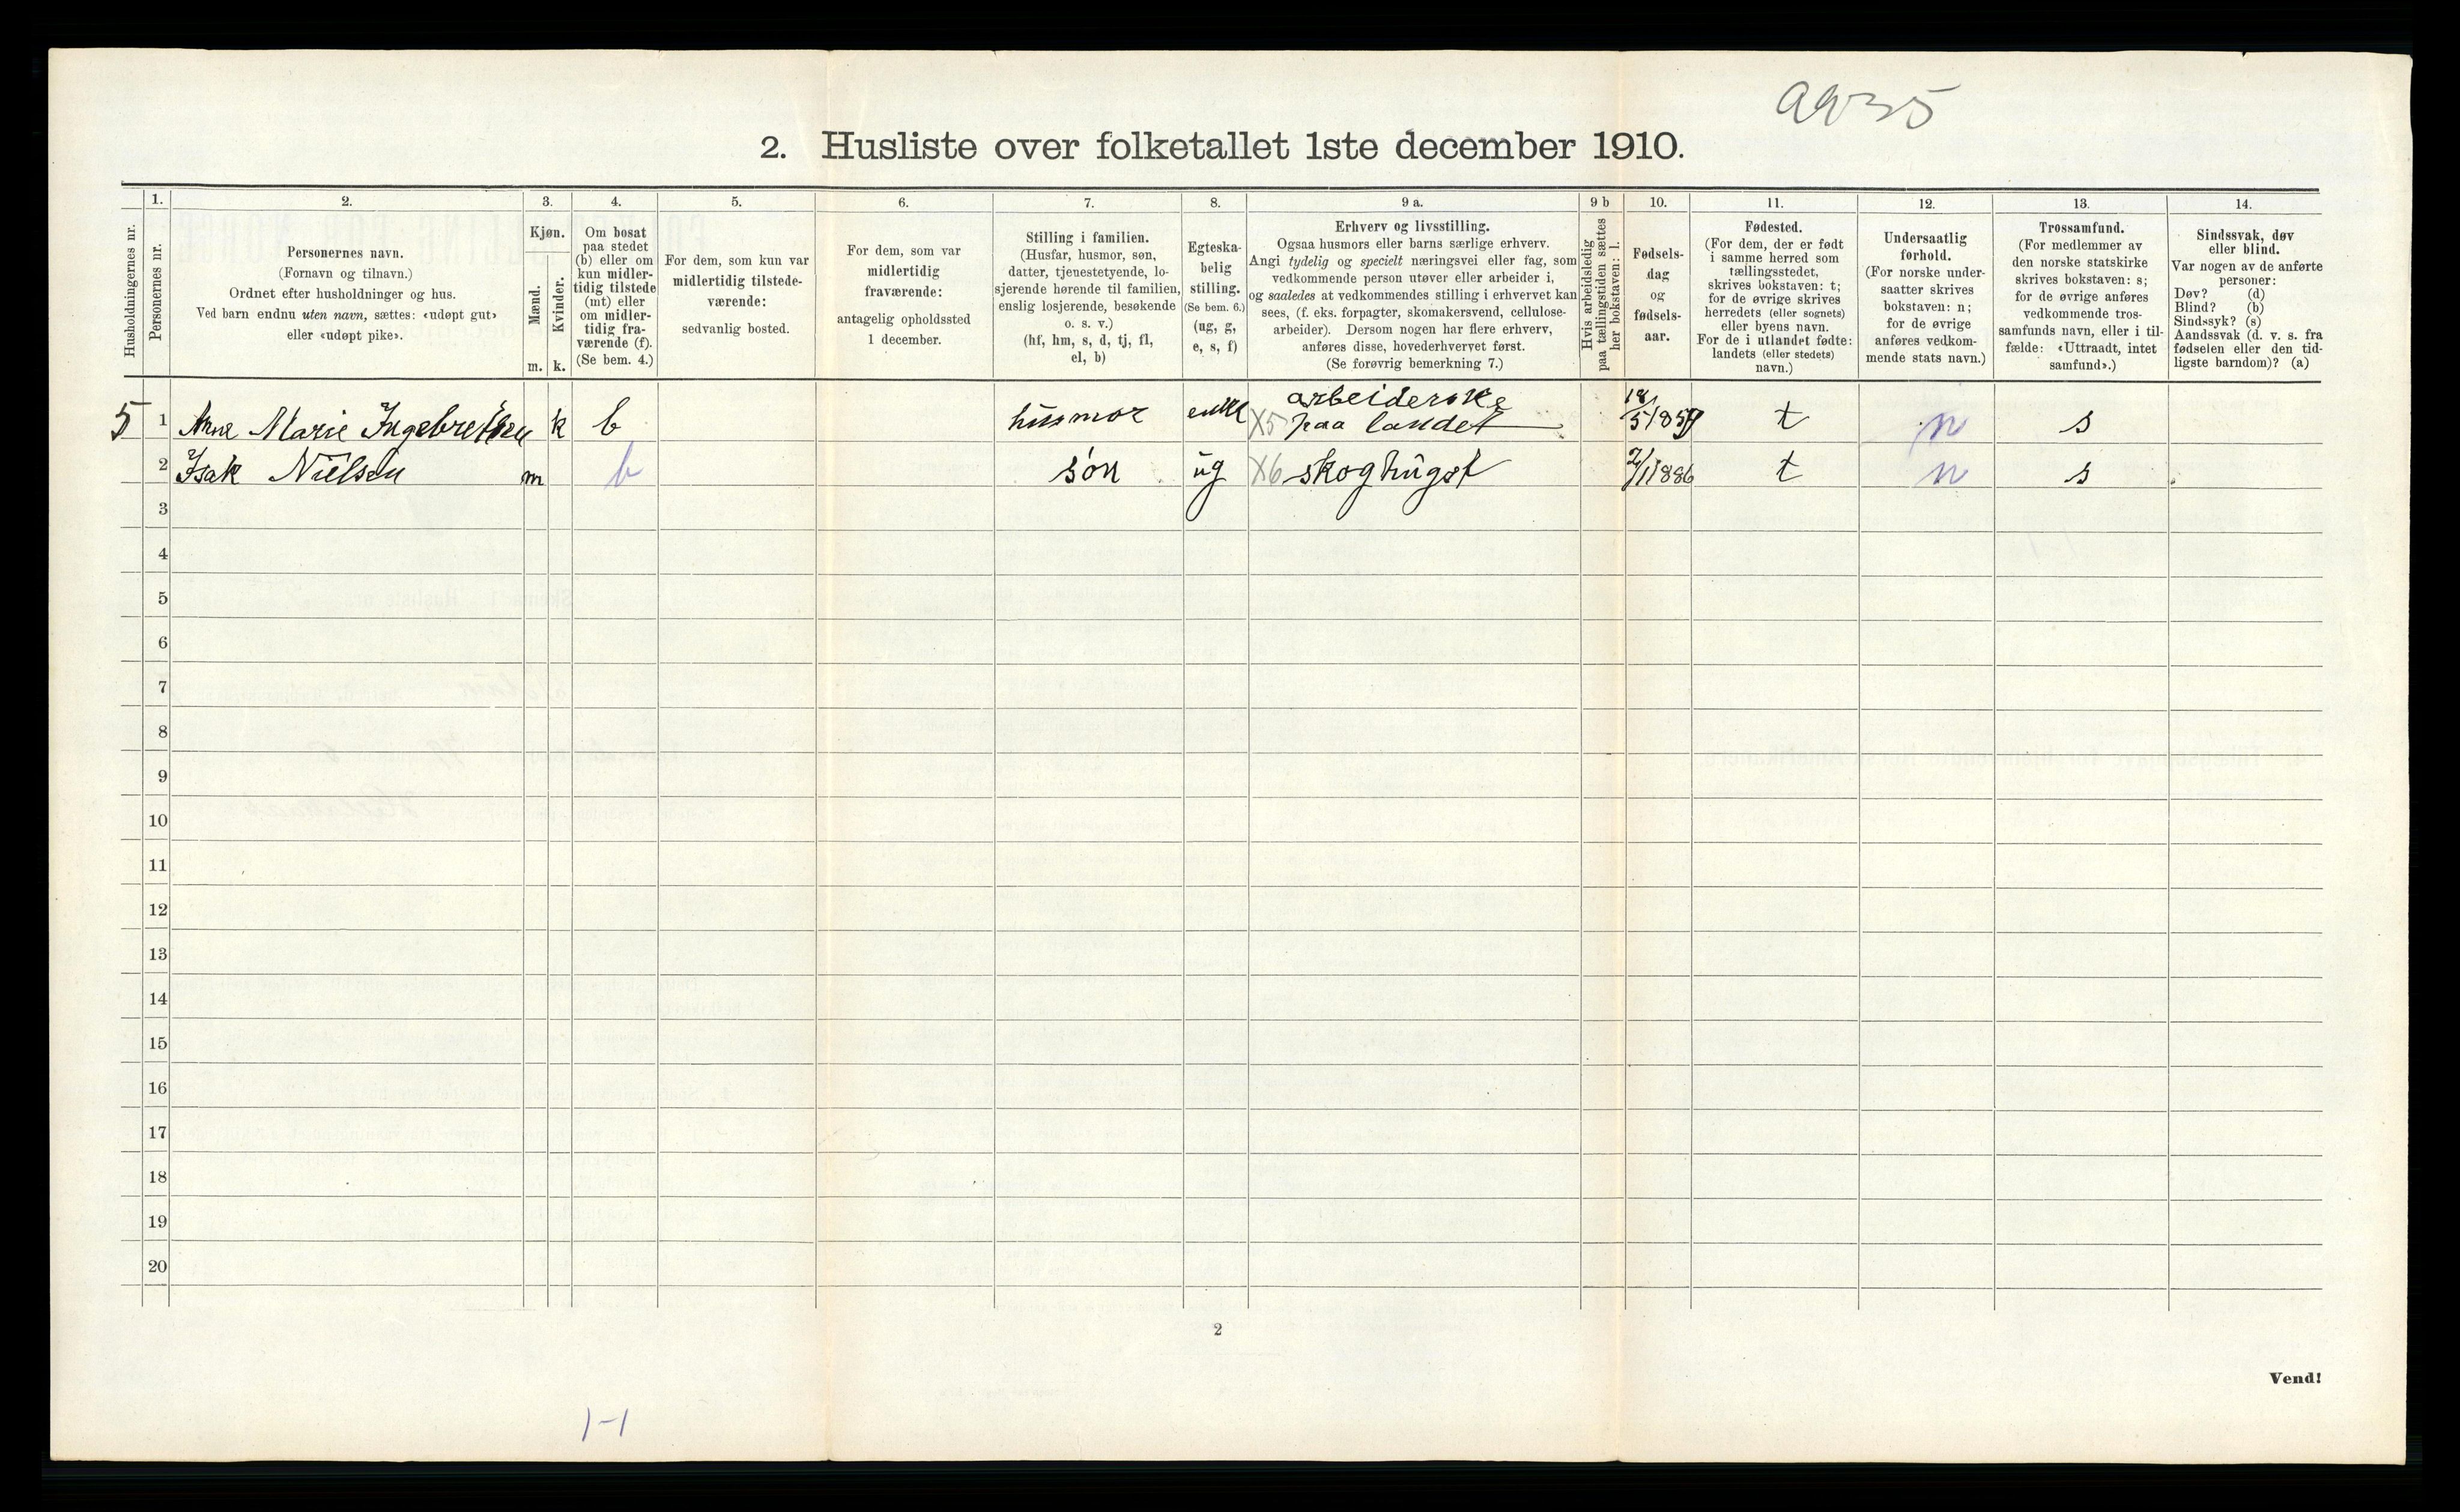 2. Husliste over folketallet 1ste december 1910.
Husholdningernes nr.
1.
Personernes nr.
2.
Personernes navn.
(Fornavn og tilnavn.)
Ordnet efter husholdninger og hus.
Ved barn endnu uten navn, sættes: «udøpt gut»
eller «udøpt pike».
3.
Kjøn.
Mænd.
m.
Kvinder.
k.
4.
Om bosat
paa stedet
(b) eller om
kun midler-
tidig tilstede
(mt) eller
om midler-
tidig fra-
værende (f).
(Se bem. 4.)
5.
For dem, som kun var
midlertidig tilstede-
værende:
sedvanlig bosted.
6.
For dem, som var
midlertidig
fraværende:
antagelig opholdssted
1 december.
7.
Stilling i familien.
(Husfar, husmor, søn,
datter, tjenestetyende, lo-
sjerende hørende til familien,
enslig losjerende, besøkende
o. s. v.)
(hf, hm, s, d, tj, fl,
el, b)
8.
Egteska-
belig
stilling.
(Se bem. 6.)
(ug, g,
e, s, f)
9 a.
Erhverv og livsstilling.
Ogsaa husmors eller barns særlige erhverv.
Angi tydelig og specielt næringsvei eller fag, som
vedkommende person utøver eller arbeider i,
og saaledes at vedkommendes stilling i erhvervet kan
sees, (f. eks. forpagter, skomakersvend, cellulose-
arbeider). Dersom nogen har flere erhverv,
anføres disse, hovederhvervet først.
(Se forøvrig bemerkning 7.)
9 b
Hvis arbeidsledig
paa tællingstiden sættes
her bokstaven: l.
10.
Fødsels-
dag
og
fødsels-
aar.
11.
Fødested.
(For dem, der er født
i samme herred som
tællingsstedet,
skrives bokstaven: t;
for de øvrige skrives
herredets (eller sognets)
eller byens navn.
For de i utlandet fødte:
landets (eller stedets)
navn.)
12.
Undersaatlig
forhold.
(For norske under-
saatter skrives
bokstaven: n;
for de øvrige
anføres vedkom-
mende stats navn.)
13.
Trossamfund.
(For medlemmer av
den norske statskirke
skrives bokstaven: s;
for de øvrige anføres
vedkommende tros-
samfunds navn, eller i til-
fælde: «Uttraadt, intet
samfund».)
14.
Sindssvak, døv
eller blind.
Var nogen av de anførte
personer:
Døv? (d)
Blind? (b)
Sindssyk? (s)
Aandssvak (d. v. s. fra
fødselen eller den tid-
ligste barndom)? (a)
5 1 Anne Marie Ingebretsen k b husmor enke X5 arbeiderske
paa landet t n s
2 Isak Nielsen m b søn ug X6 skoghugst 2/1 1886 t n s
3
4
5
6
7
8
9
10
11
12
13
14
15
16
17
18
19
20
2
Vend!
1-1